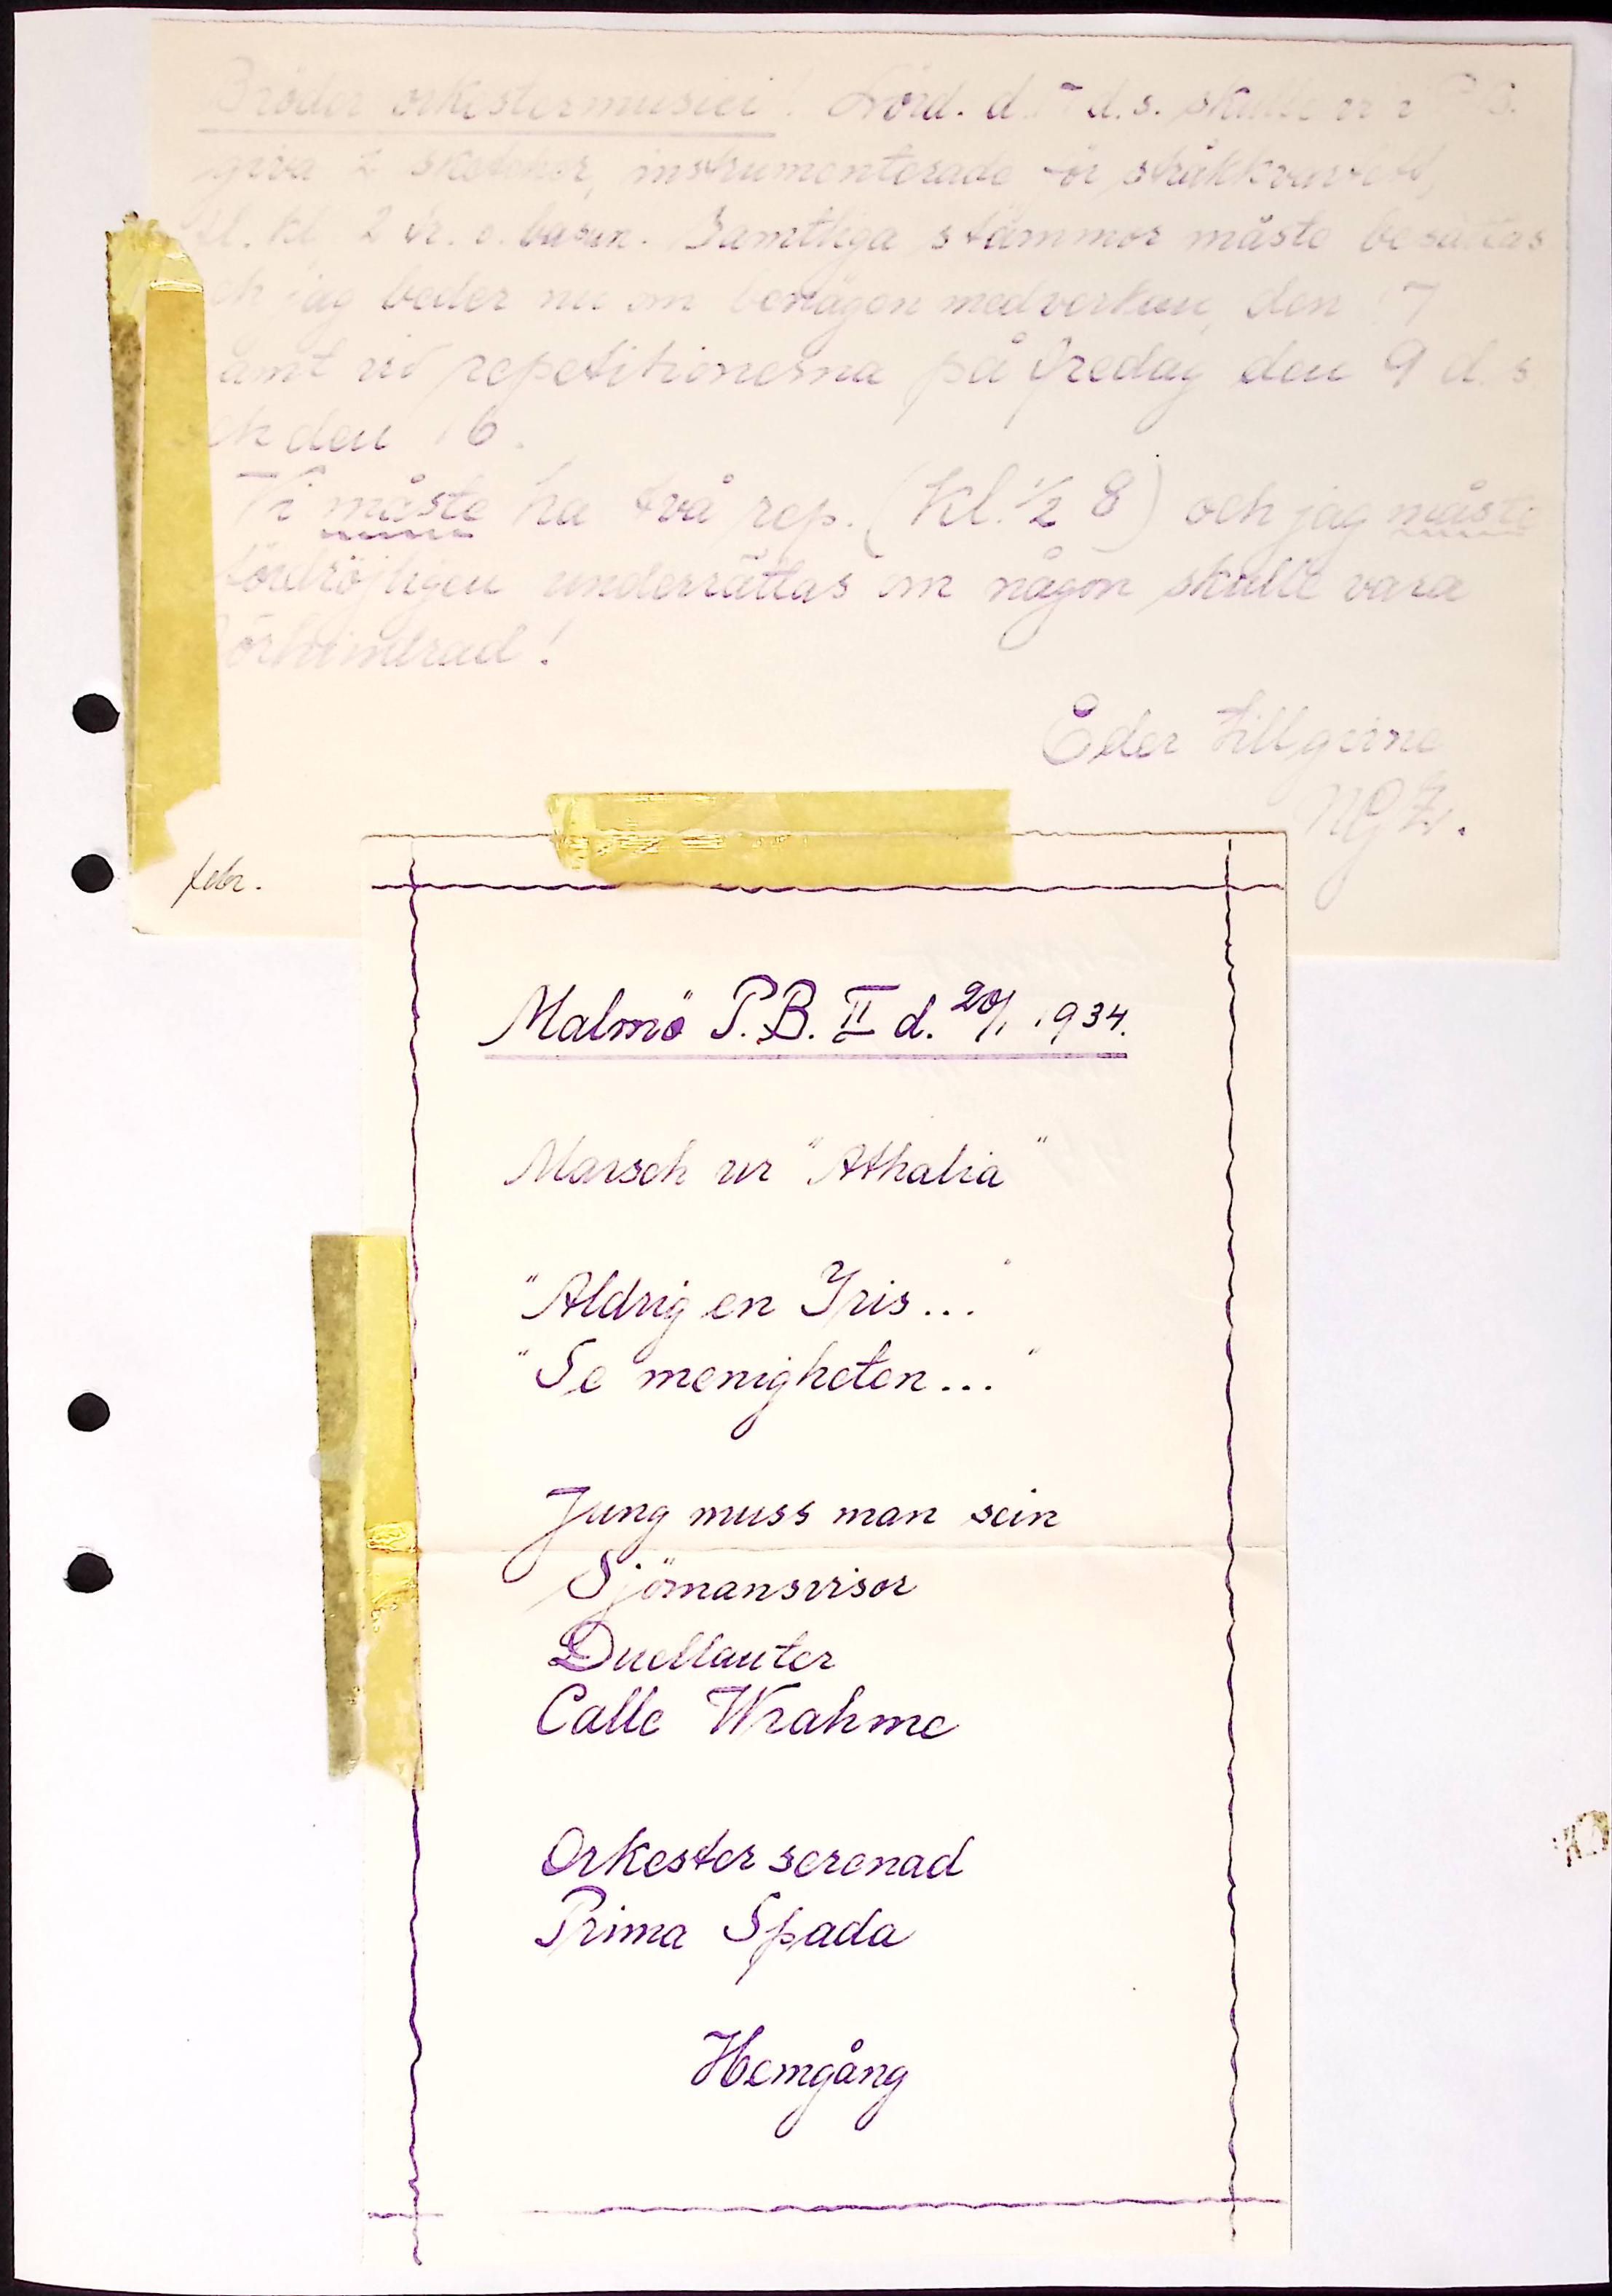 Bröder orkestermusici! Lörd. d. d.s. skulle vi i P.B.
giva 2 sketcher, instrumenterade för stråkkvartett,
fl. kl. 2 tr. o. basun. Samtliga stämmor måste besättas
ch jag beder nu om benägen medverkan, den 17
amt vid repetitionerna på fredag den 9 d. s
ch den 16.
Vi måste ha två rep. (Kl. ½ 8) och jag måste
ofördröjligen underrättas om någon skulle vara
förhindrad!
Eder tillgivne
febr.
Malmö P.B. II d. 20/1 1934.
Marsch ur "Athalia"
"Aldrig en Iris..."
"Se menigheten..."
Jung muss man sein
Sjömansvisor
Duellanter
Calle Wrahme
Orkester serenad
Prima Spada
Hemgång